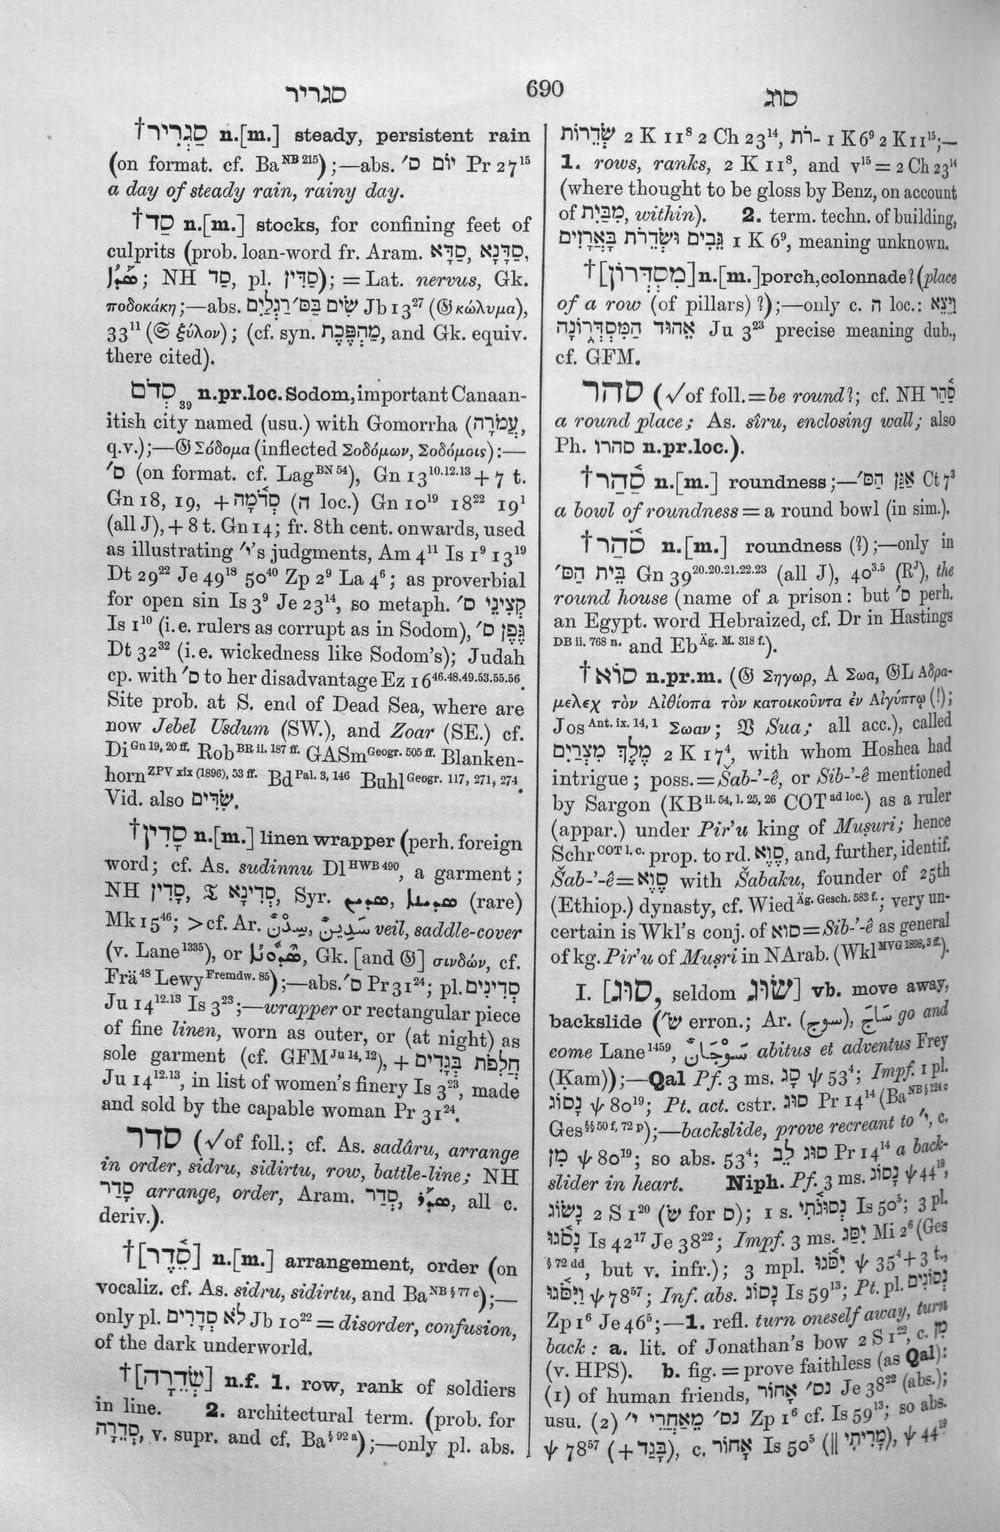 סגריר
690
סוג
†סַגְרִיר n.[m.] steady, persistent rain
(on format. cf. Ba NB 215);—abs. יוֹם ס׳ Pr 27 15
a day of steady rain, rainy day.
†סַד n.[m.] stocks, for confining feet of
culprits (prob. loan-word fr. Aram. סַדָּא, סַדָּנָא,
; NH סַד, pl. סַדִּין); = Lat. nervus, Gk.
ποδοκάκη;—abs. שִׂים בַּסּ׳ רַגְלִים Jb 13 27 (𝔊 κώλυμα),
33 11 (𝔖 ξύλον); (cf. syn. מַהְפֶּכֶת, and Gk. equiv.
there cited).
סְדֹם 39 n.pr.loc. Sodom, important Canaan-
itish city named (usu.) with Gomorrha (עֲמֹרָה,
q.v.);—𝔊 Σόδομα (inflected Σοδόμων, Σοδόμοις):—
ס׳ (on format. cf. Lag BN 54), Gn 13 10.12.13 + 7 t.
Gn 18, 19, + סְדֹמָה (ה loc.) Gn 10 19 18 22 19 1
(all J), + 8 t. Gn 14; fr. 8th cent. onwards, used
as illustrating י׳'s judgments, Am 4 11 Is 1 9 13 19
Dt 29 22 Je 49 18 50 40 Zp 2 9 La 4 6; as proverbial
for open sin Is 3 9 Je 23 14, so metaph. קְצִינֵי ס׳
Is 1 10 (i.e. rulers as corrupt as in Sodom), גֶּפֶן ס׳
Dt 32 32 (i.e. wickedness like Sodom's); Judah
cp. with ס׳ to her disadvantage Ez 16 46.48.49.53.55.56.
Site prob. at S. end of Dead Sea, where are
now Jebel Usdum (SW.), and Zoar (SE.) cf.
Di Gn 19, 20 ff. Rob BR ii. 187 ff. GASm Geogr. 505 ff. Blanken-
horn ZPV xix (1896), 53 ff. Bd Pal. 3, 146 Buhl Geogr. 117, 271, 274.
Vid. also שִׂדִּים.
†סָדִין n.[m.] linen wrapper (perh. foreign
word; cf. As. sudinnu Dl HWB 490, a garment;
NH סָדִין, 𝔗 סְדִינָא, Syr. (rare)
Mk 15 46; > cf. Ar. veil, saddle-cover
(v. Lane 1335), or Gk. [and 𝔊] σινδών, cf.
Frä 48 Lewy Fremdw. 85);—abs. ס׳ Pr 31 24; pl. סְדִינִים
Ju 14 12.13 Is 3 23;—wrapper or rectangular piece
of fine linen, worn as outer, or (at night) as
sole garment (cf. GFM Ju 14, 12), + חֲלִפֹת בְּגָדִים
Ju 14 12.13, in list of women's finery Is 3 23, made
and sold by the capable woman Pr 31 24.
סדר (√of foll.; cf. As. sadâru, arrange
in order, sidru, sidirtu, row, battle-line; NH
סָדַר arrange, order, Aram. סְדַר, all c.
deriv.).
†[סֵ֫דֶר] n.[m.] arrangement, order (on
vocaliz. cf. As. sidru, sidirtu, and Ba NB § 77 c);—
only pl. לֹא סְדָרִים Jb 10 22 = disorder, confusion,
of the dark underworld.
†[שְׂדֵרָה] n.f. 1. row, rank of soldiers
in line. 2. architectural term. (prob. for
סְדֵרָה, v. supr. and cf. Ba § 92 a);—only pl. abs.
שְׂדֵרוֹת 2 K 11 8 2 Ch 23 14, רֹת- 1 K 6 9 2 K 11 15;—
1. rows, ranks, 2 K 11 8, and v 15 = 2 Ch 23 14
(where thought to be gloss by Benz, on account
of מִבֵּית, within). 2. term. techn. of building,
גֵּבִים וּשְׂדֵרֹת בָּאֲרָזִים 1 K 6 9, meaning unknown.
†[מִסְדְּרוֹן] n.[m.] porch, colonnade? (place
of a row (of pillars)?);—only c. ה loc.: וַיֵּצֵא
אֵהוּד הַמִּסְדְּרוֹנָה Ju 3 23 precise meaning dub.,
cf. GFM.
סהר (√of foll. = be round?; cf. NH סַ֫הַר
a round place; As. sîru, enclosing wall; also
Ph. סהרו n.pr.loc.).
†סַ֫הַר n.[m.] roundness;—אַגַּן הַסּ׳ Ct 7 3
a bowl of roundness = a round bowl (in sim.).
†סֹ֫הַר n.[m.] roundness (?);—only in
בֵּית הַסּ׳ Gn 39 20.20.21.22.23 (all J), 40 3.5 (R J), the
round house (name of a prison: but ס׳ perh.
an Egypt. word Hebraized, cf. Dr in Hastings
DB ii. 768 n. and Eb Äg. M. 318 f.).
†סוֹא n.pr.m. (𝔊 Σηγωρ, A Σωα, 𝔊L Αδρα-
μελεχ τὸν Αἰθίοπα τὸν κατοικοῦντα ἐν Αἰγύπτῳ (!);
Jos Ant. ix. 14, 1 Σωαν; 𝔙 Sua; all acc.), called
מֶלֶךְ מִצְרַיִם 2 K 17 4, with whom Hoshea had
intrigue; poss. = Šab-'-ê, or Sib-'-ê mentioned
by Sargon (KB ii. 54, l. 25, 26 COT ad loc.) as a ruler
(appar.) under Pir'u king of Muṣuri; hence
Schr COT l. c. prop. to rd. סְוֵא, and, further, identif.
Šab-'-ê = סְוֵא with Šabaku, founder of 25th
(Ethiop.) dynasty, cf. Wied Äg. Gesch. 583 f.; very un-
certain is Wkl's conj. of סוא = Sib-'-ê as general
of kg. Pir'u of Muṣri in NArab. (Wkl MVG 1898, 3 ff.).
I. [סוּג, seldom שׂוּג] vb. move away,
backslide (שׂ׳ erron.; Ar. (سوج), سَاجَ go and
come Lane 1459, سَوَجَانٌ abitus et adventus Frey
(Ḳam));—Qal Pf. 3 ms. סָג ψ 53 4; Impf. 1 pl.
נָסוֹג ψ 80 19; Pt. act. cstr. סוּג Pr 14 14 (Ba NB § 124 c
Ges §§ 50 f, 72 p);—backslide, prove recreant to י׳, c.
מִן ψ 80 19; so abs. 53 4; סוּג לֵב Pr 14 14 a back-
slider in heart. Niph. Pf. 3 ms. נָסוֹג ψ 44 19,
נָשׂוֹג 2 S 1 20 (שׂ for ס); 1 s. נְסוּגֹתִי Is 50 5; 3 pl.
נָסֹ֫גוּ Is 42 17 Je 38 22; Impf. 3 ms. יִסַּג Mi 2 6 (Ges
§ 72 dd, but v. infr.); 3 mpl. יִסֹּ֫גוּ ψ 35 4 + 3 t.,
וַיִּסֹּ֫גוּ ψ 78 57; Inf. abs. נָסוֹג Is 59 13; Pt. pl. נְסוֹגִים
Zp 1 6 Je 46 5;—1. refl. turn oneself away, turn
back: a. lit. of Jonathan's bow 2 S 1 22, c. מִן
(v. HPS). b. fig. = prove faithless (as Qal):
(1) of human friends, נס׳ אָחוֹר Je 38 22 (abs.);
usu. (2) נס׳ מֵאַחֲרֵי י׳ Zp 1 6 cf. Is 59 13; so abs.
ψ 78 57 (+ בָּגַד), c. אָחוֹר Is 50 5 (|| מָרִיתִי), ψ 44 19